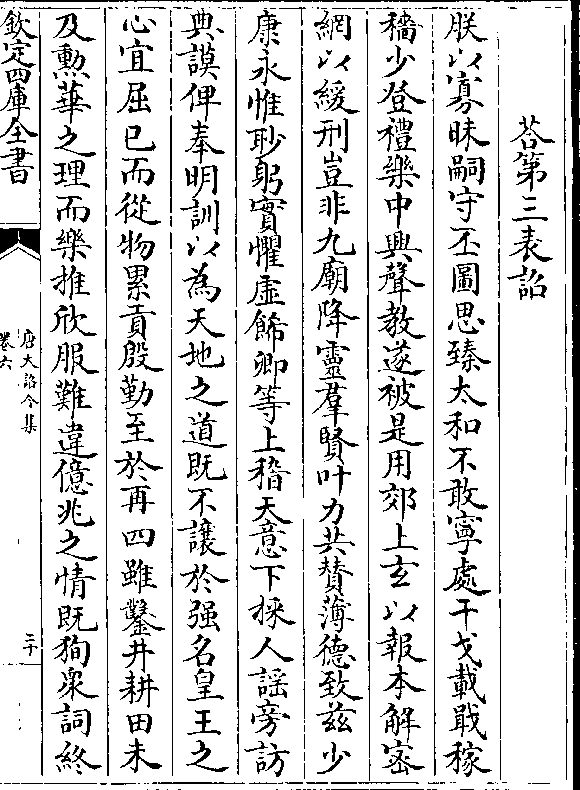 荅第三表詔
朕以寡昧嗣守丕圖思臻太和不敢寧處干戈載戢稼
穡少登禮樂中興聲教遂被是用郊上玄以報本解密
網以緩刑豈非九廟降靈羣賢叶力共賛薄德致兹少
康永惟眇躬實懼虛飾卿等上稽天意下採人謡旁訪
典謨俾奉明訓以為天地之道既不讓於强名皇王之
心宜屈已而從物累貢殷勤至於再四雖鑿井耕田未
及勲華之理而樂推欣服難違億兆之情既狥衆詞終
欽定四庫全書
唐大詔令集
卷六
三十